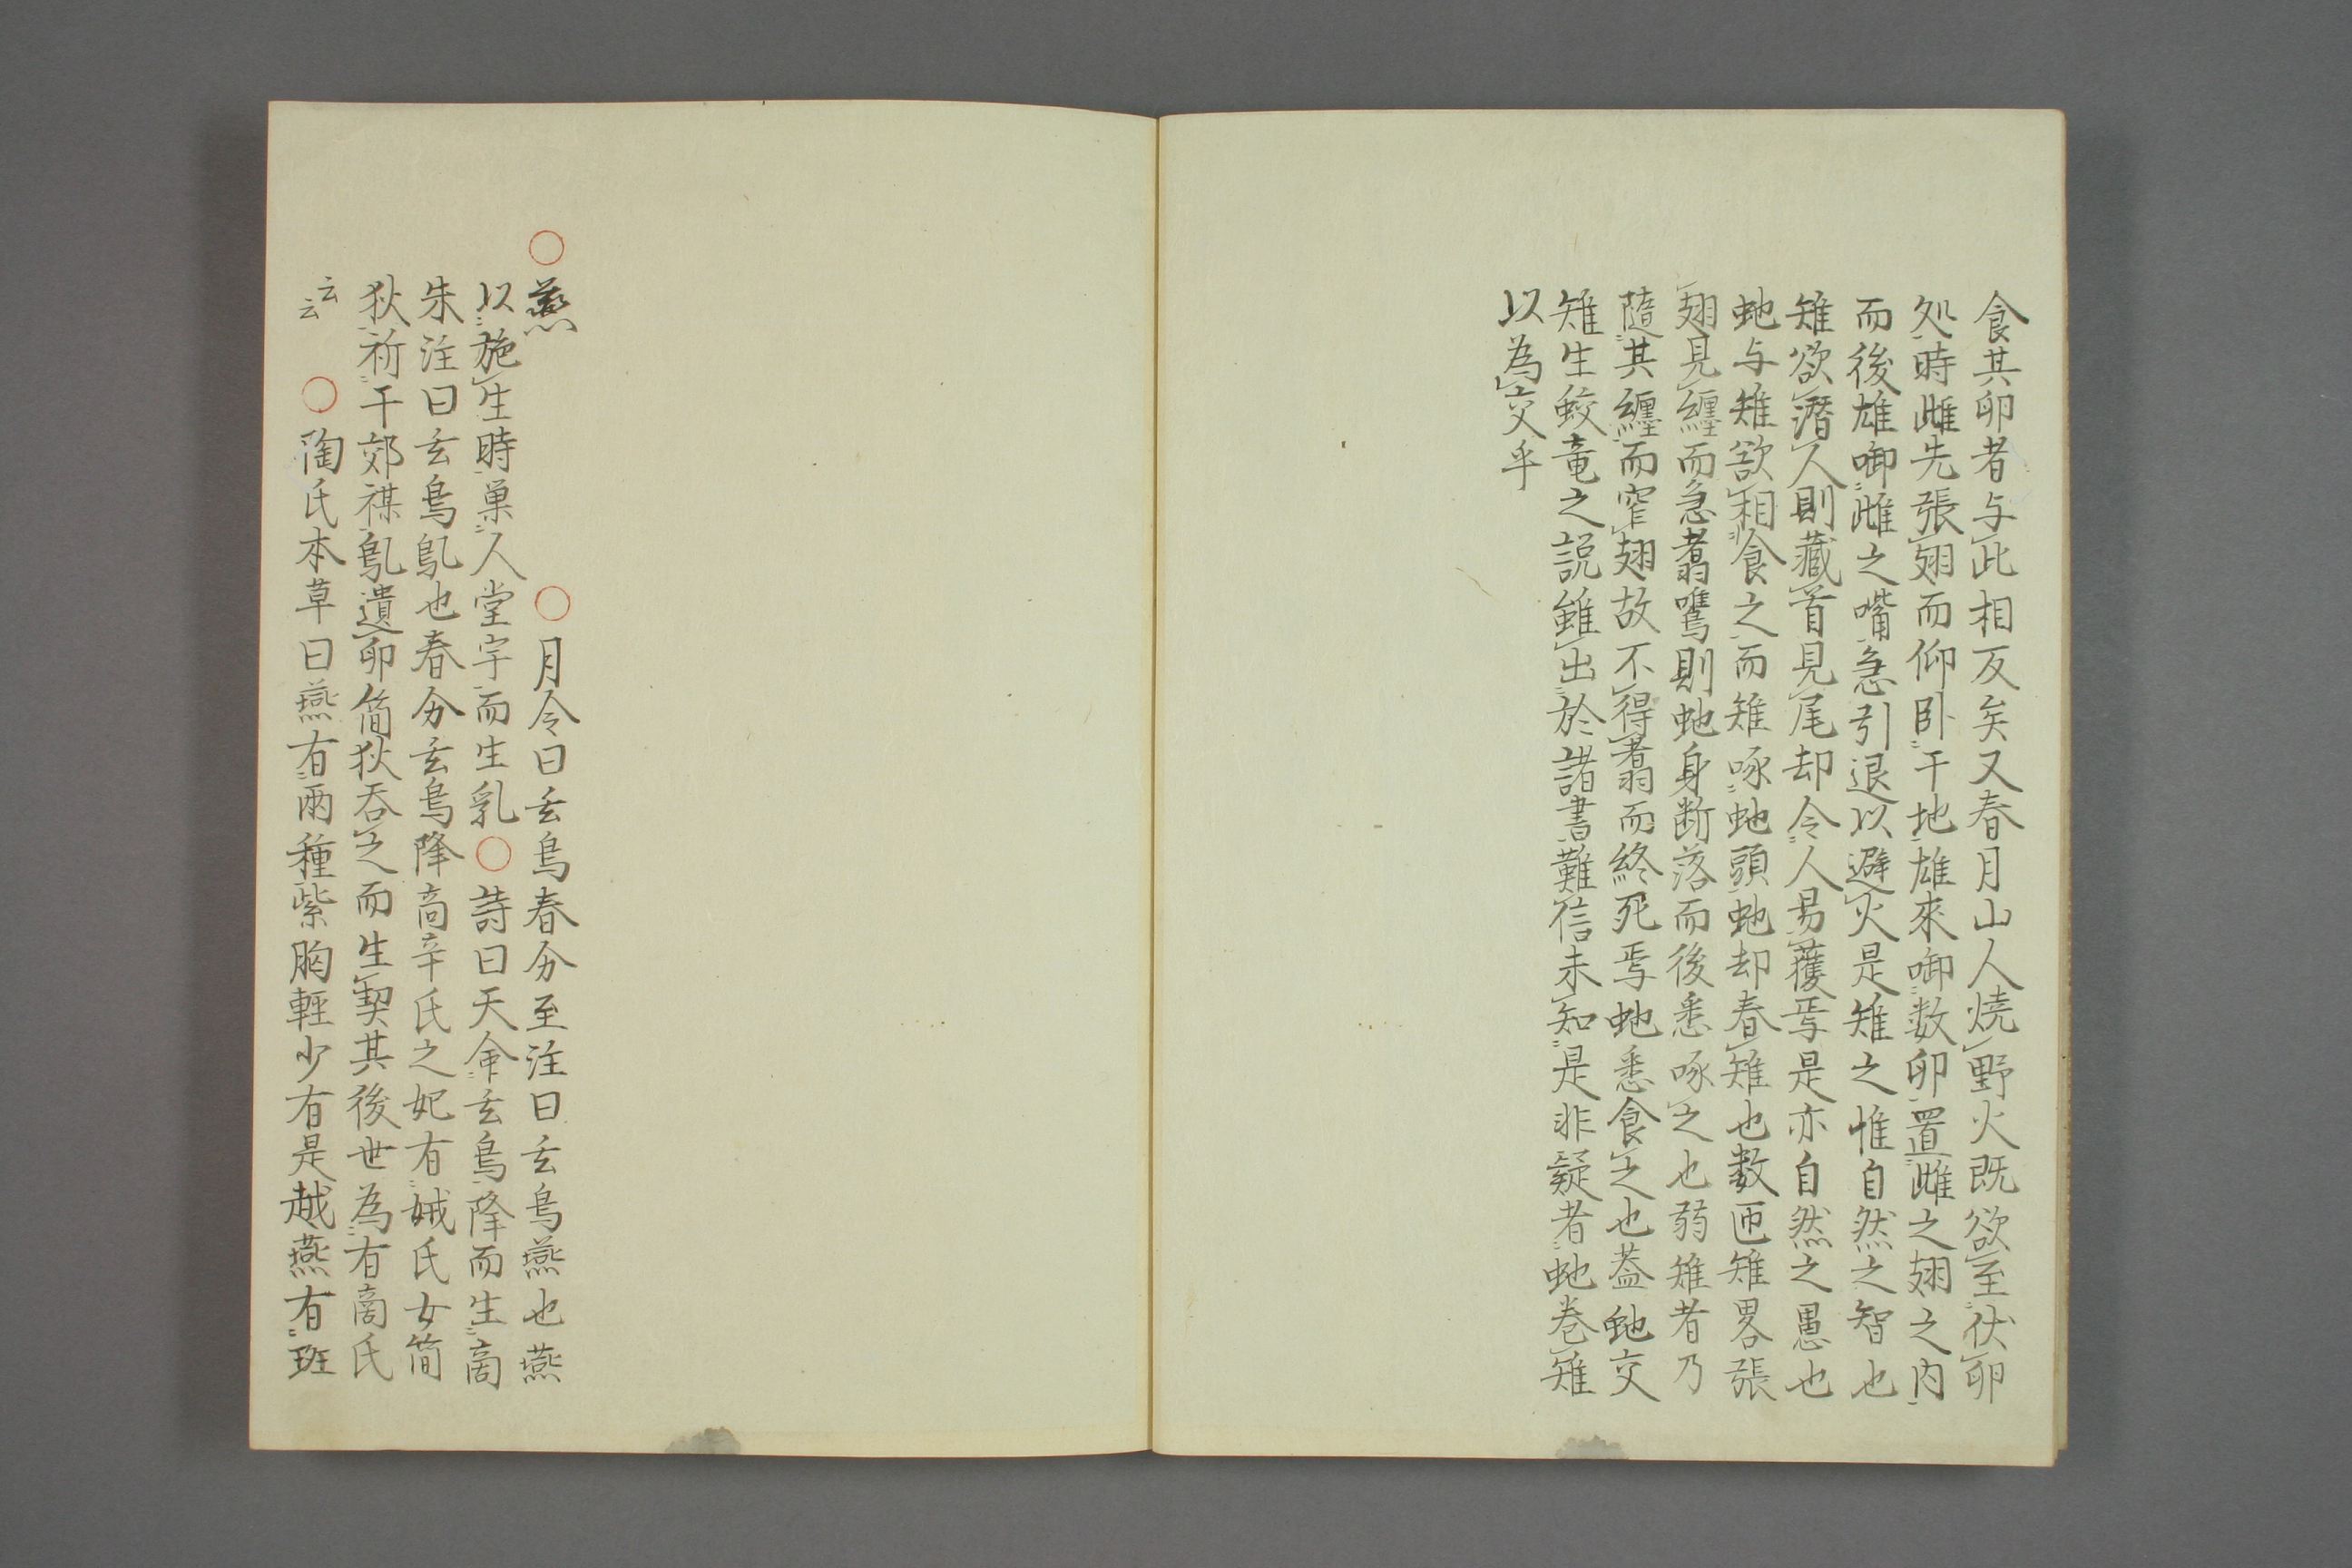 食其卵者与此相反矣又春月山人焼野火既欲至伏卵
処時雌先張翅而仰臥于地雄来啣数卵置雌之翅之内
而後雄啣雌之嘴急引退以避火是雉之惟自然之智也
雉欲潜人則蔵首見尾却令人易獲焉是亦自然之愚也
虵与雉欲相食之而雉啄虵頭虵却春雉也数匝雉畧張
翅見纏而急翥噕則虵身断落而後悉啄之也弱雉者乃
随其纏而窄翅故不得翥而終死焉虵悉食之也蓋虵交
雉生蛟竜之説雖出於諸書難信未知是非疑者虵巻雉
以為交乎
○燕
○月令曰玄鳥春分至注曰玄鳥燕也燕
以施生時巣人堂宇而生乳○詩曰天命玄鳥降而生商
朱注曰玄鳥鳦也春分玄鳥降高辛氏之妃有娀氏女簡
狄祈于郊禖鳦遺卵簡狄呑之而生契其後世為有商氏
云云 ○陶氏本草曰燕有両種紫胸軽少有是越燕有斑